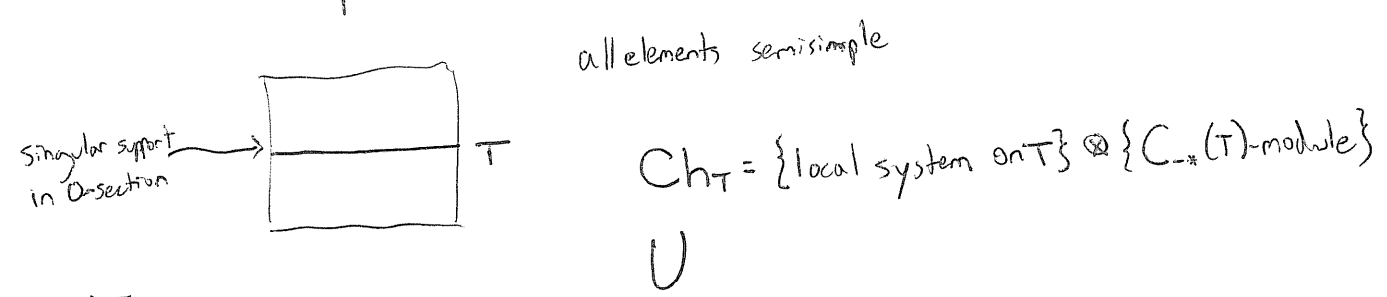 all elements semisimple
Singular support
in 0-section
T
Ch_T = {local system on T} ⊗ {C_{-*}(T)-module}
U